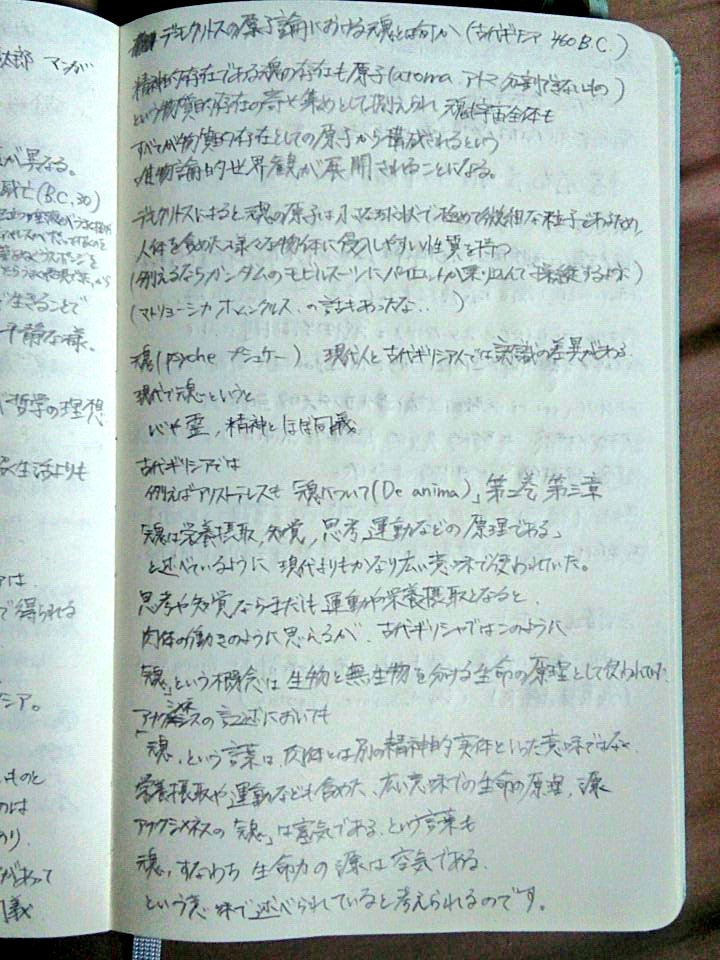 太郎 マンガ
が異なる。
死亡(B.C.30)
生きることで
平静な様。
哲学の理想
生活よりも
で得られる
シア。
ものと
のは
のり、
デモクリトスの原子論における魂とは何か(古代ギリシア 460 B.C.)
精神的存在である魂の存在も原子(atoma アトマ 分割できないもの)
という物質的存在の寄せ集めとして捉えられ 魂も宇宙全体も
すべてが物質的存在としての原子から構成されるという
唯物論的世界観が展開されることになる。
デモクリトスによると魂の原子は 球状で極めて微細な粒子であるため、
人体を含めた様々な物体に侵入しやすい性質を持つ
(例えるならガンダムのモビルスーツにパイロットが乗り込んで操縦するような)
(マトリョーシカ ホムンクルス の話もあったな.. )
魂(psyche プシュケー) 現代人と古代ギリシア人では認識の差異がある
現代で魂というと
心や霊、精神とほぼ同義
古代ギリシアでは
例えばアリストテレスも「魂について(De anima)」第二巻 第二章
「魂は栄養摂取、知覚、思考、運動などの原理である」
と述べているように、現代よりもかなり広い意味で使われていた。
思考や知覚ならまだしも運動や栄養摂取となると、
肉体の働きのように思えるが、古代ギリシャではこのように
「魂」という概念は生物と無生物を分ける生命の原理として使われていた
アナクシメネスの記述においても
「魂」という言葉は、肉体とは別の精神的実体といった意味ではなく
栄養摂取や運動なども含めた、広い意味での生命の原理、源
アナクシメネスの「魂」は空気である、という言葉も
魂、すなわち 生命力の源は空気である、
という意味で述べられていると考えられるのです。